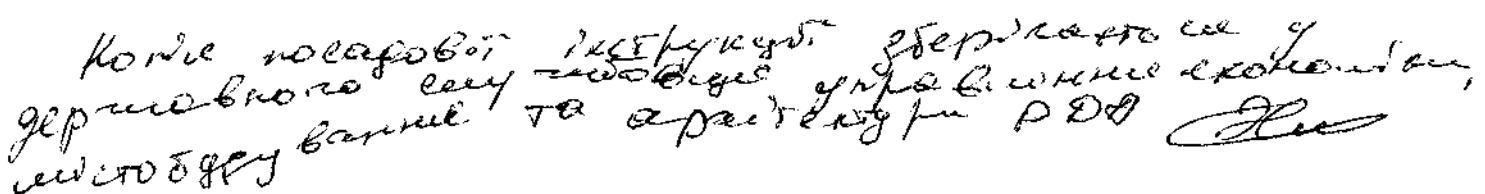 Копія посадової інструкції зберігається у
державного службовця управління економіки,
містобудування та архітектури РДА